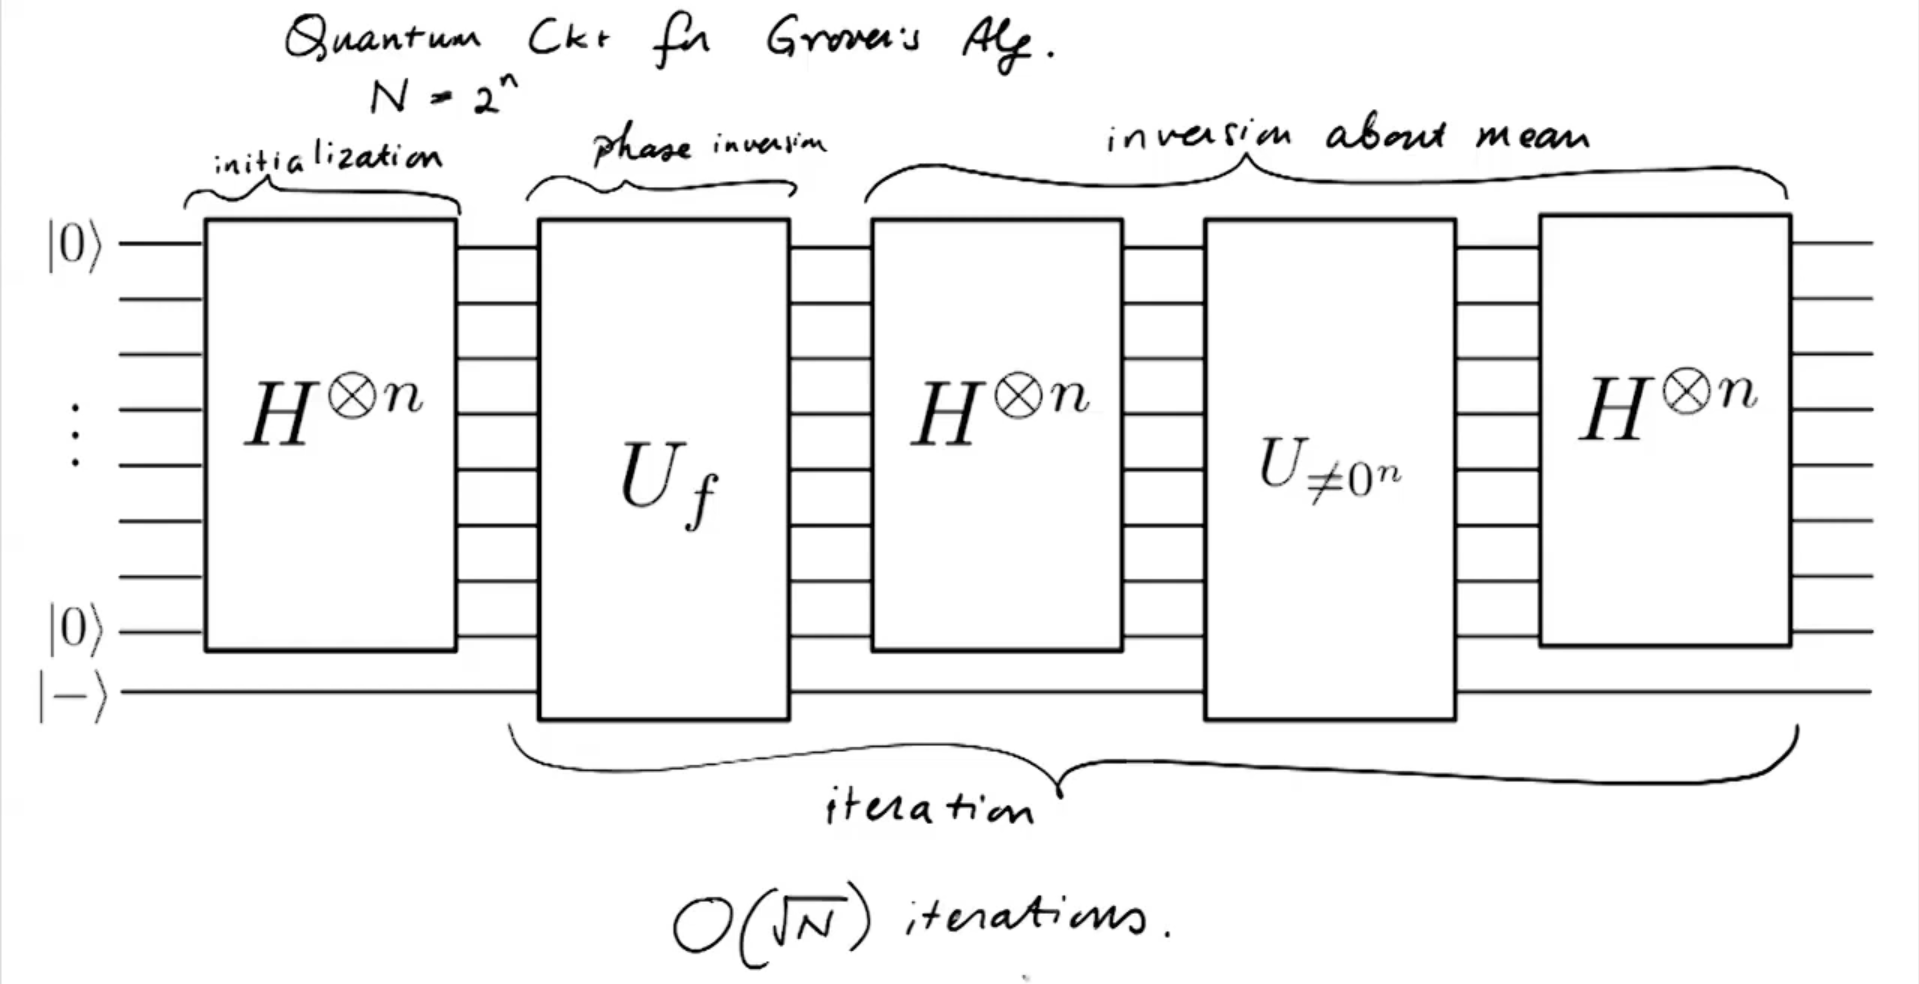 Quantum Ckt for Grover's Alg.
N = 2ⁿ
initialization
phase inversion
inversion about mean
|0⟩
⋮
|0⟩
|−⟩
H⊗n
U_f
H⊗n
U_≠0ⁿ
H⊗n
iteration
O(√N) iterations.